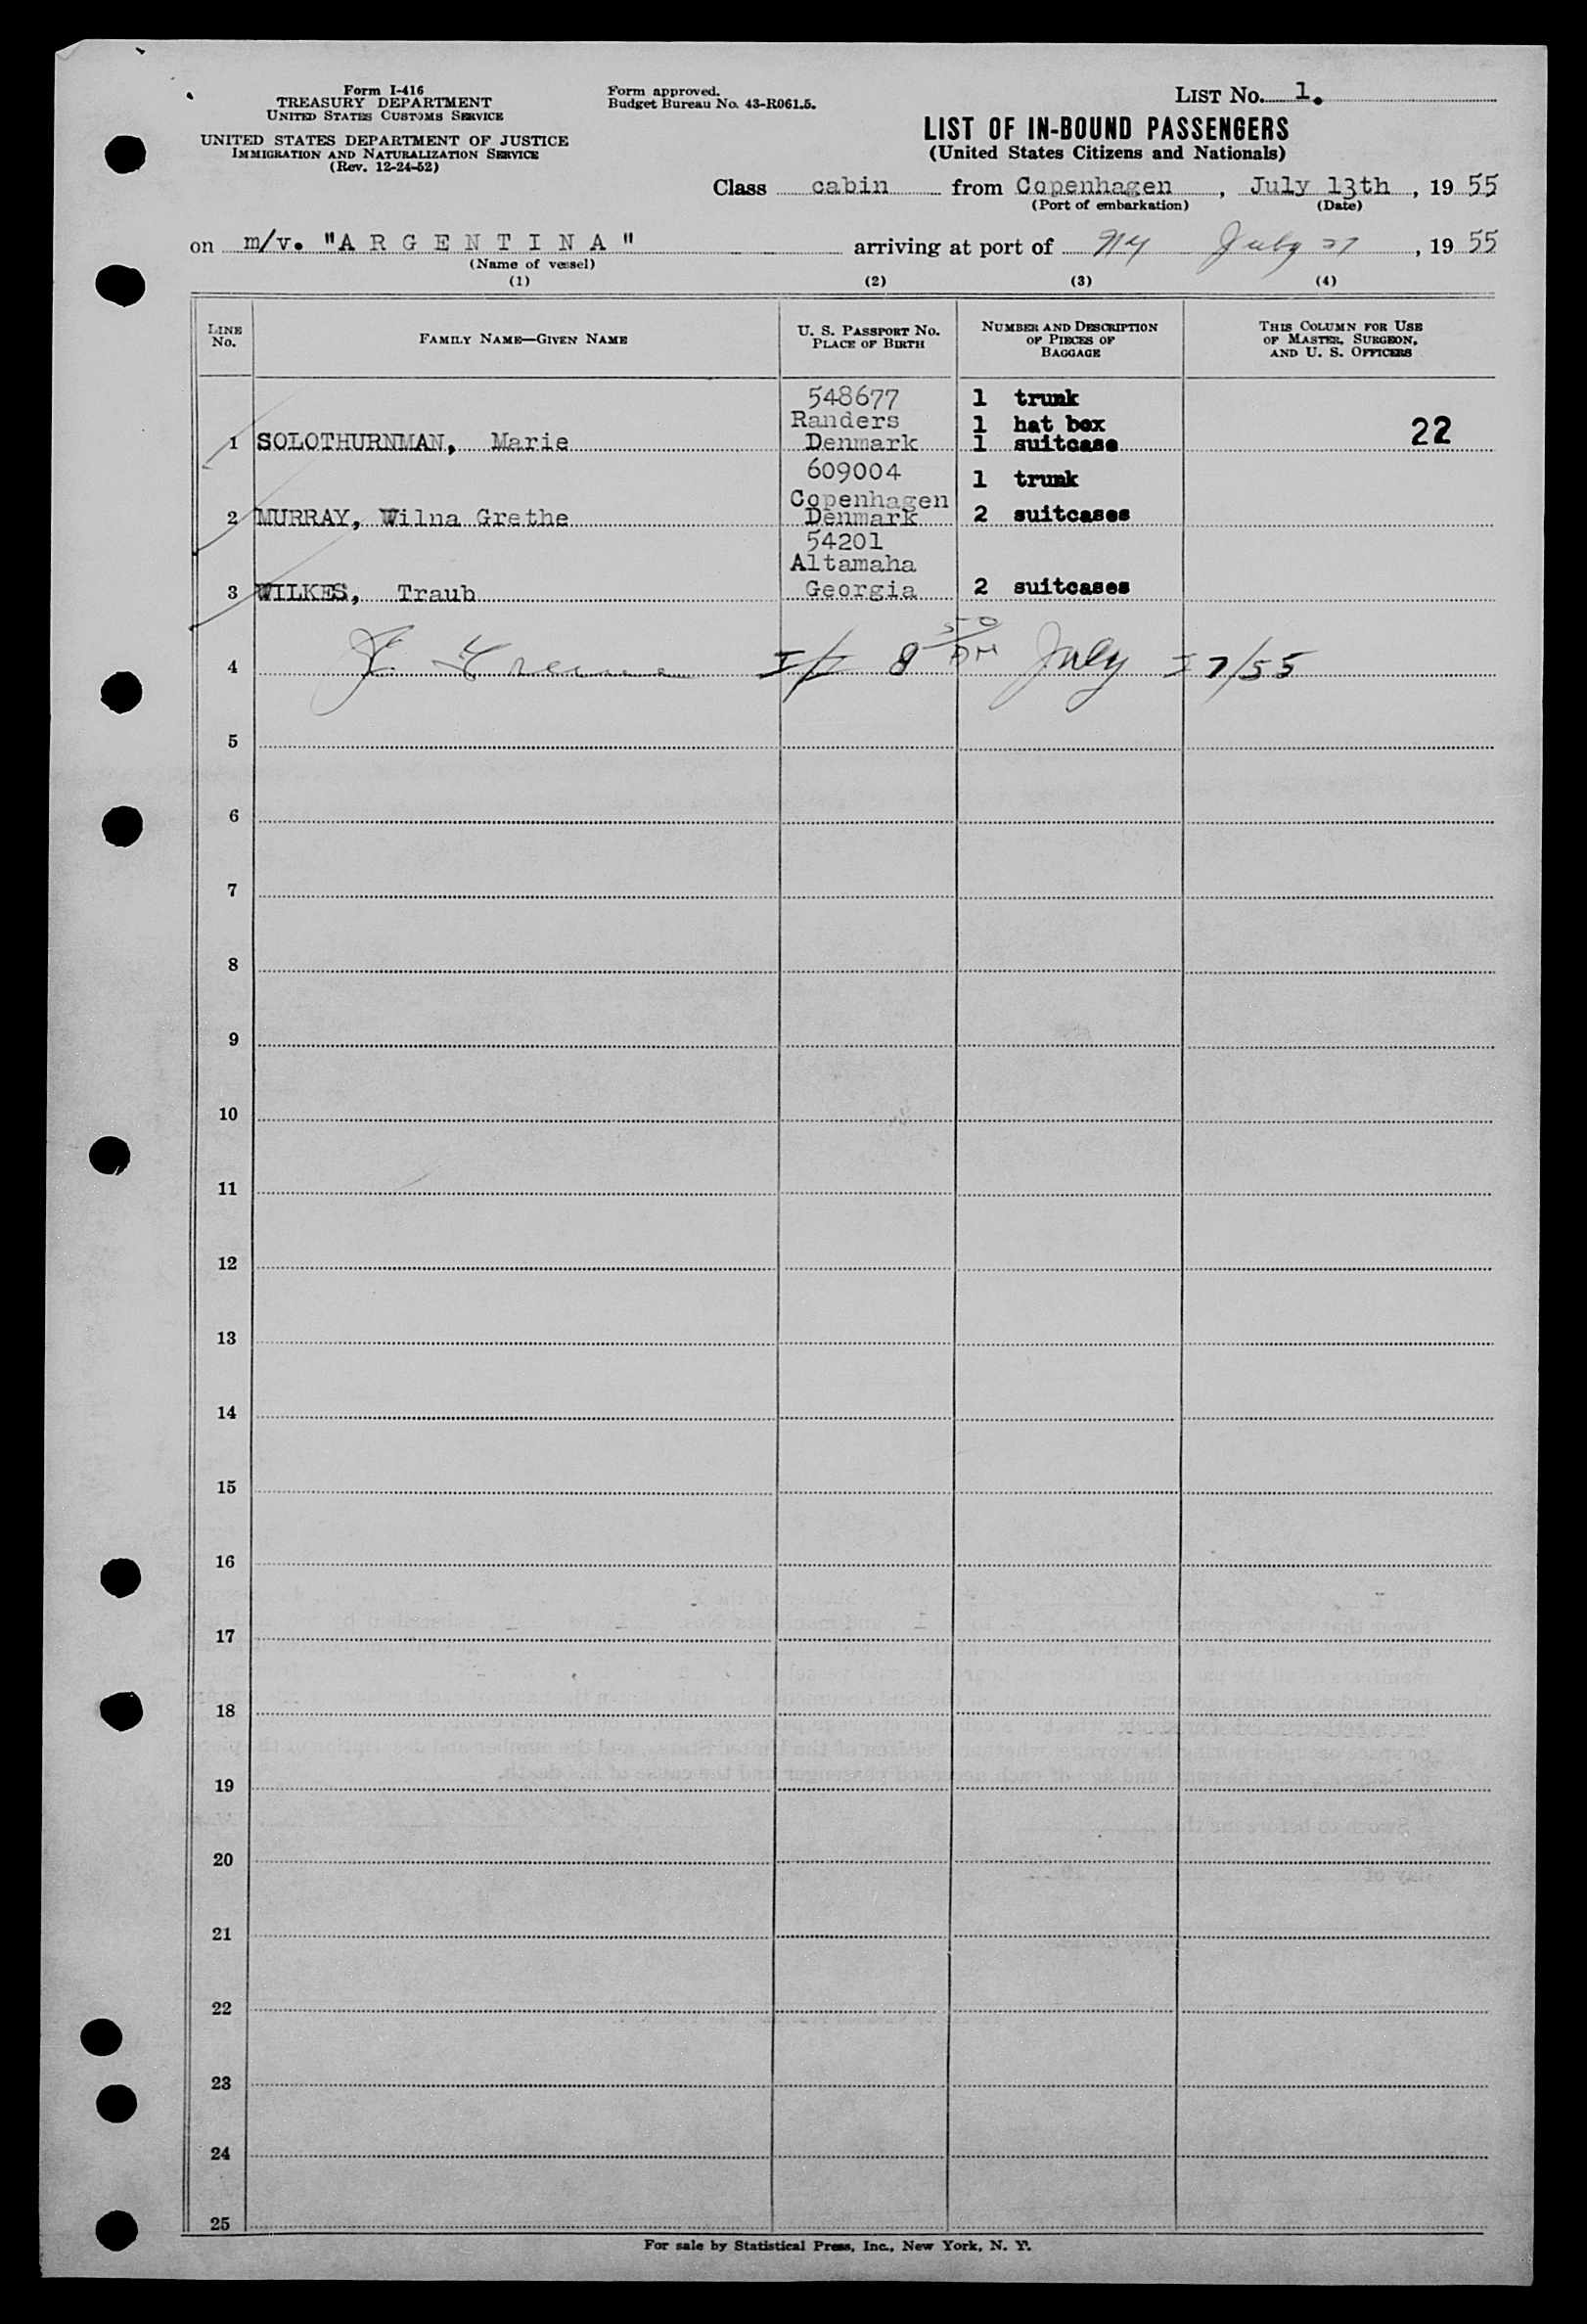 Form I-416
TREASURY DEPARTMENT
UNITED STATES CUSTOMS SERVICE
UNITED STATES DEPARTMENT OF JUSTICE
IMMIGRATION AND NATURALIZATION SERVICE
(Rev. 12-24-52)
Form approved.
Budget Bureau No. 43-R061.5.
LIST No. 1.
LIST OF IN-BOUND PASSENGERS
(United States Citizens and Nationals)
Class cabin from Copenhagen, July 13th, 1955
(Port of embarkation) (Date)
on m/v. "ARGENTINA" arriving at port of NY July 27, 1955
(Name of vessel)
(1) (2) (3) (4)
LINE No. FAMILY NAME—GIVEN NAME U. S. PASSPORT No. PLACE OF BIRTH NUMBER AND DESCRIPTION OF PIECES OF BAGGAGE THIS COLUMN FOR USE OF MASTER, SURGEON, AND U. S. OFFICERS
548677 1 trunk
Randers 1 hat box
1 SOLOTHURNMAN, Marie Denmark 1 suitcase 22
609004 1 trunk
Copenhagen
2 MURRAY, Wilna Grethe Denmark 2 suitcases
54201
Altamaha
3 WILKES, Traub Georgia 2 suitcases
4 8 50 July 27/55
5
6
7
8
9
10
11
12
13
14
15
16
17
18
19
20
21
22
23
24
25
For sale by Statistical Press, Inc., New York, N. Y.